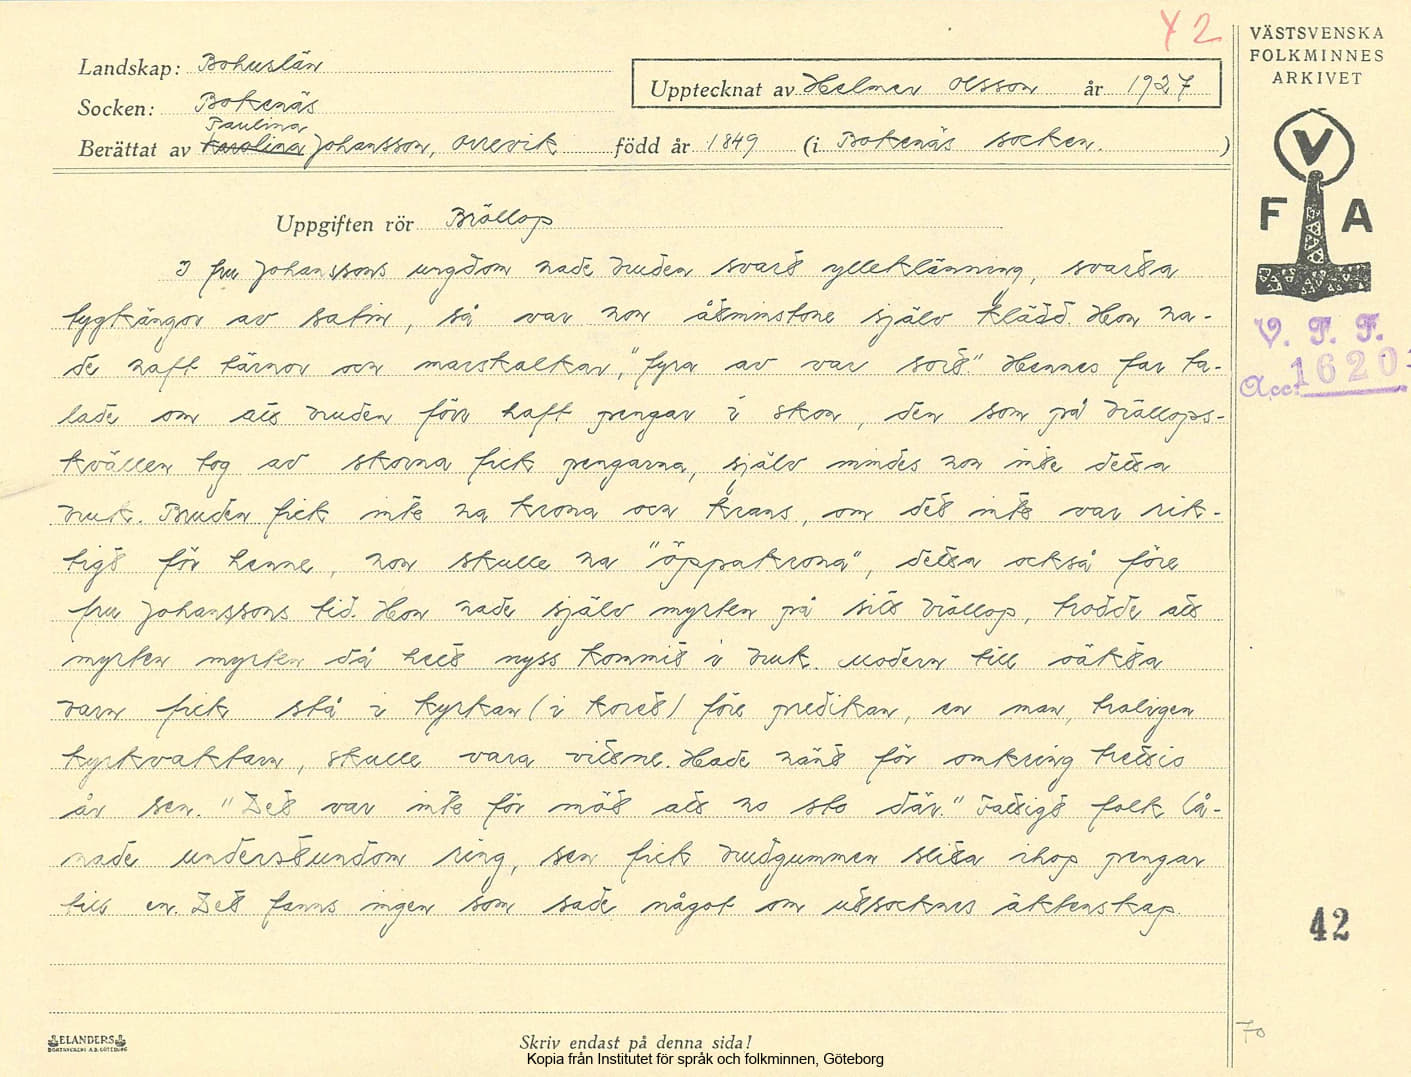 Y 2
VÄSTSVENSKA
FOLKMINNES
ARKIVET
Landskap: Bohuslän
Upptecknat av Helmer Olsson år 1927
Socken: Bokenäs
Paulina
Berättat av Karolina Johansson, Orrevik född år 1849 (i Bokenäs socken. )
V
F A
Uppgiften rör Bröllop
I fru Johanssons ungdom hade bruden svart ylleklänning, svarta
tygkängor av satin, så var hon åtminstone själv klädd. Hon ha-
de haft tärnor och marskalkar, "fyra av var sort." Hennes far ta-
lade om att bruden förr haft pengar i skon, den som på bröllops-
kvällen tog av skorna fick pengarna, själv mindes hon inte detta
bruk. Bruden fick inte ha krona och krans, om det inte var rik-
tigt för henne, hon skulle ha "öppakrona", detta också före
fru Johanssons tid. Hon hade själv myrten på sitt bröllop, trodde att
myrten myrten då helt nyss kommit i bruk. Modern till oäkta
barn fick stå i kyrkan (i koret) före predikan, en man, troligen
kyrkvaktarn, skulle vara vittne. Hade hänt för omkring trettio
år sen. "Det var inte för möt att ho sto där." Fattigt folk lå-
nade understundom ring, sen fick brudgummen slita ihop pengar
till en. Det fanns ingen som sade något om utsocknes äktenskap.
V. F. F.
Acc. 1620
42
70
ELANDERS
BOKTRYCKERI A.B. GÖTEBORG
Skriv endast på denna sida!
Kopia från Institutet för språk och folkminnen, Göteborg